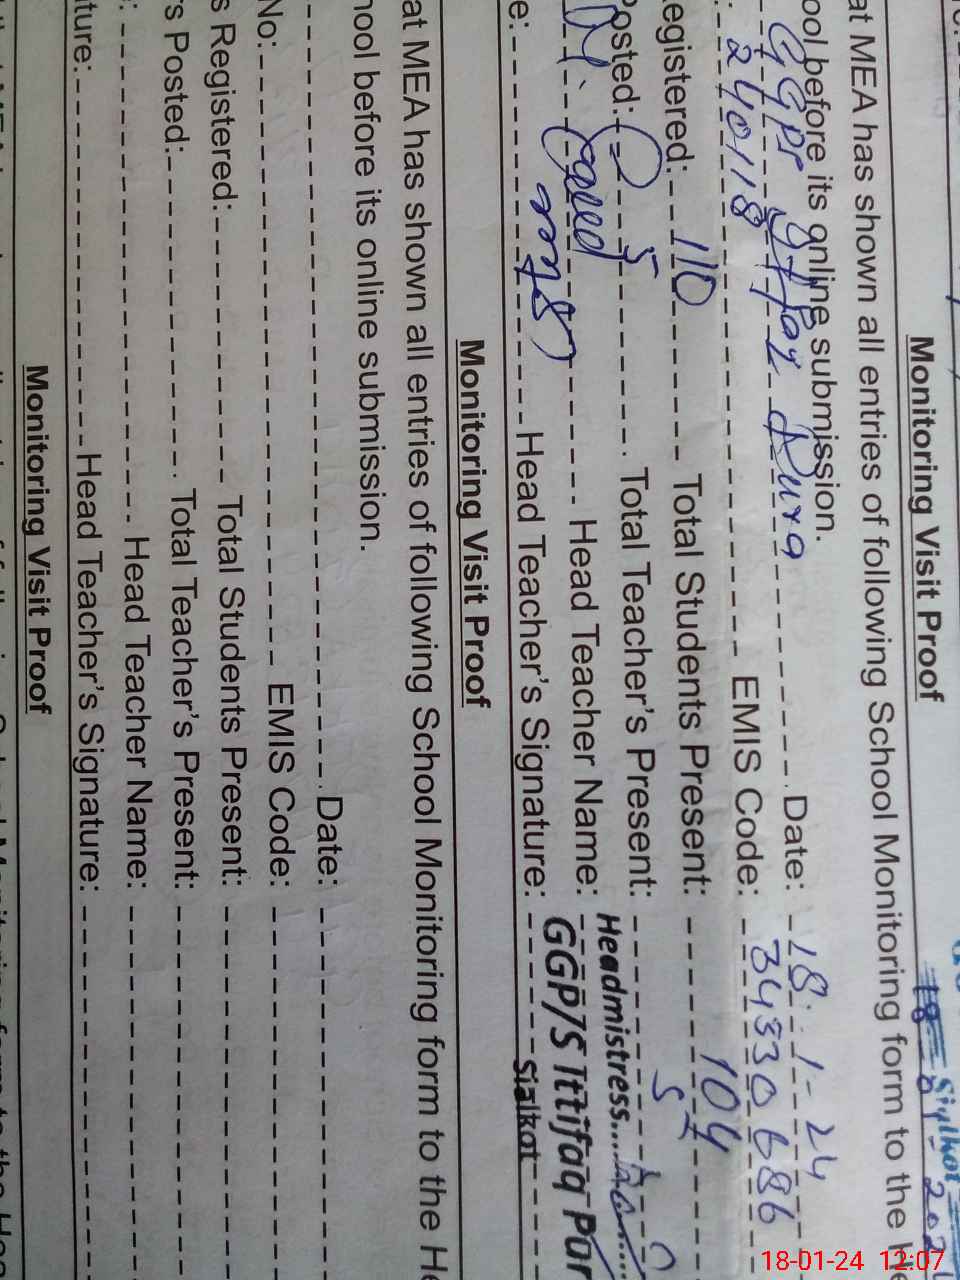 Siylkot
Monitoring Visit Proof
at MEA has shown all entries of following School Monitoring form to the He
ool before its online submission.
GGps Date: 18-1-24
240118 EMIS Code: 34330686
egistered: 110 Total Students Present: 104
Posted: 5 Total Teacher's Present: 5
Head Teacher Name: Headmistress....
e: Head Teacher's Signature: GGP/S Ittifaq Por
Sialkot
Monitoring Visit Proof
at MEA has shown all entries of following School Monitoring form to the He
hool before its online submission.
Date:
No: EMIS Code:
s Registered: Total Students Present:
's Posted: Total Teacher's Present:
: Head Teacher Name:
ture: Head Teacher's Signature:
Monitoring Visit Proof
18-01-24 12:07